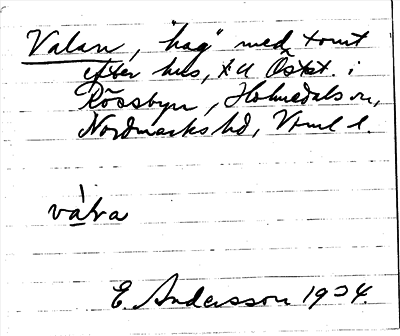 Valan, "hag" med tomt
efter hus, t. u Östst. i
Rössbyn, Holmedals sn,
Nordmarks hd, Vrml l.
vàla
E. Andersson 1934.